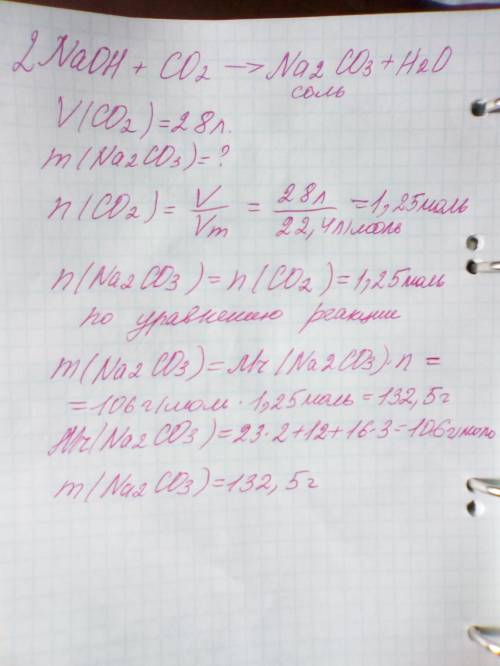 2NaOH + CO2 → Na2CO3 + H2O
соль
V(CO2) = 28л.
m(Na2CO3) = ?
n(CO2) = V/Vm = 28л/22,4л/моль = 1,25моль
n(Na2CO3) = n(CO2) = 1,25моль
по уравнению реакции
m(Na2CO3) = Mr(Na2CO3)·n =
= 106г/мол · 1,25моль = 132,5г
Mr(Na2CO3) = 23·2+12+16·3 = 106г/моль
m(Na2CO3) = 132,5г